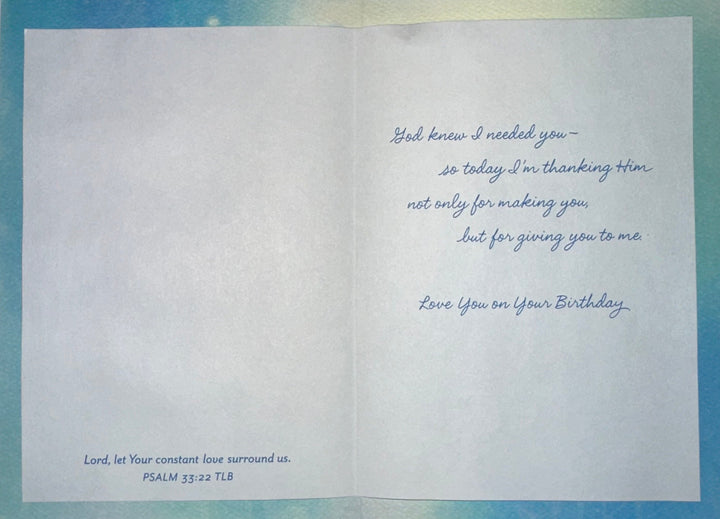 Lord, let Your constant love surround us.
PSALM 33:22 TLB
God knew I needed you—
so today I'm thanking Him
not only for making you,
but for giving you to me.
Love You on Your Birthday